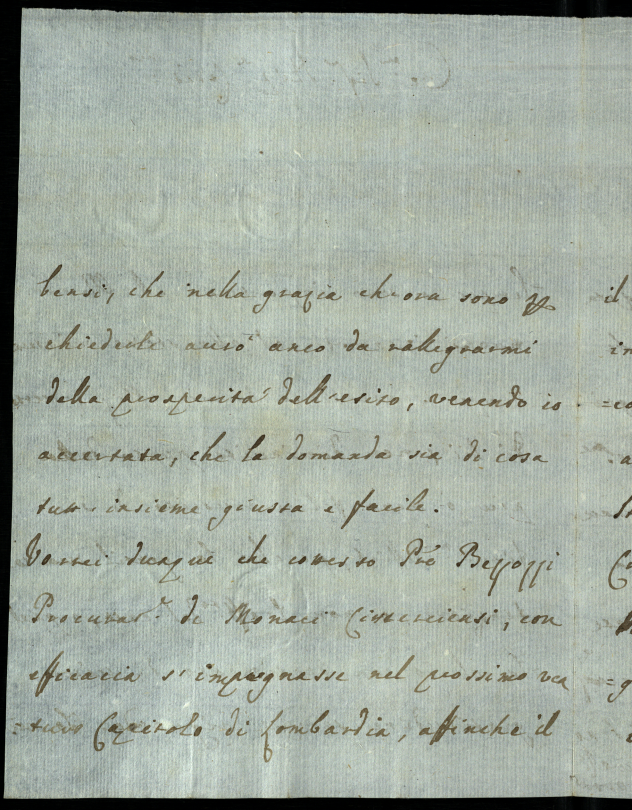 bensi, che nella grazia ch'ora sono p
chiederle aurò anco da rallegrarmi
della prosperità dell'esito, venendo io
accertata, che la domanda sia di cosa
tutt' insieme giusta e facile.
Vorrei dunque che cotesto Prê Besozzi
Procurat.r de Monaci Cisterciensi, con
efficacia s'impegnasse nel prossimo ven
=turo Capitolo di Lombardia, affinche il
il